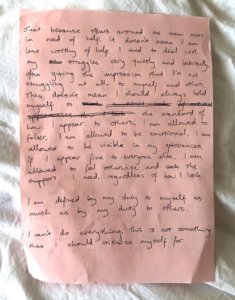 Just because others around me seem more
in need of help, it doesn't mean I am
less worthy of help. I tend to deal with
my struggles very quietly and internally,
often giving the impression that I'm not
struggling at all, to myself and others.
This doesn't mean I should always hold
myself to the standard of
how I appear to others. I am allowed to
falter. I am allowed to be emotional. I am
allowed to be visible in my grievances.
If I appear fine to everyone else, I am
allowed to feel otherwise and seek the
support I need, regardless of how I look.
I am defined by my duty to myself as
much as by my duty to others.
I can't do everything. This is not something
that I should criticise myself for.